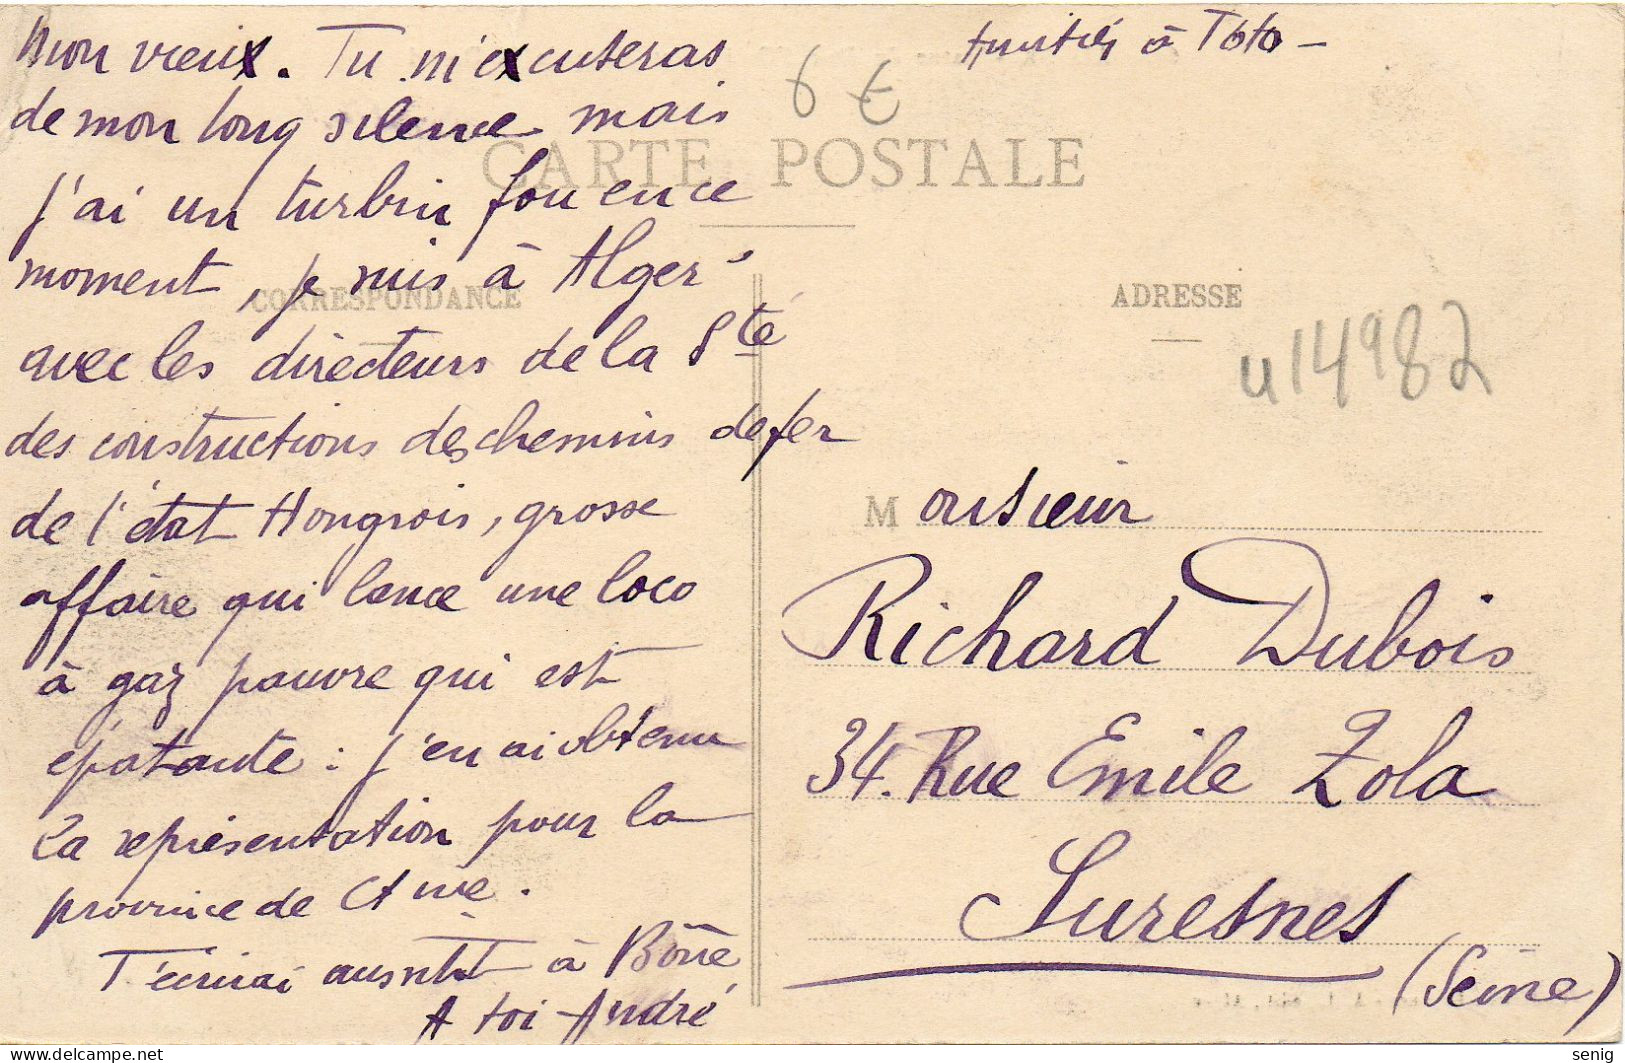 Mon vieux. Tu m'excuseras
de mon long silence mais
j'ai un turbin fou en ce
moment, je suis à Alger
avec les directeurs de la Sté
des constructions des chemins de fer
de l'état Hongrois, grosse
affaire qui lance une loco
à gaz pauvre qui est
épatante : j'en ai obtenu
la représentation pour la
province de Ctine.
T'écrirai aussitôt à Bône
A toi André
Amitiés à Toto -
6 €
CARTE POSTALE
CORRESPONDANCE
ADRESSE
u14982
Monsieur
Richard Dubois
34. Rue Emile Zola
Suresnes
(Seine)
senig